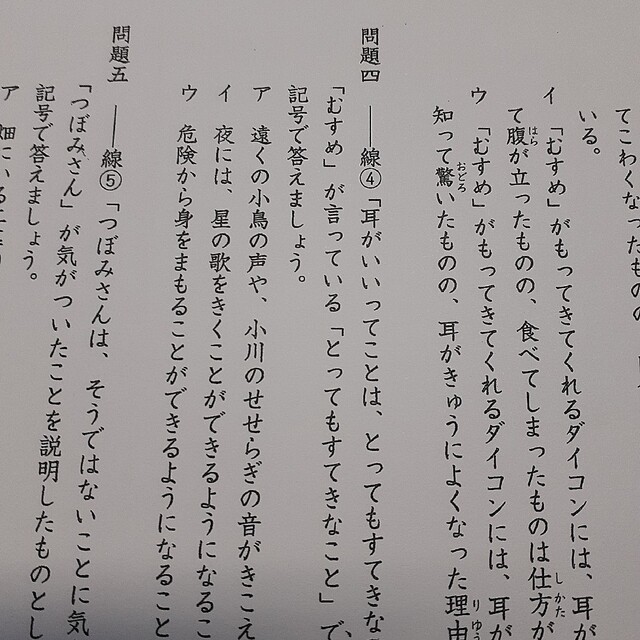 てこわくなったものの
いる。
イ 「むすめ」がもってきてくれるダイコンには、耳が
て腹が立ったものの、食べてしまったものは仕方が
ウ 「むすめ」がもってきてくれるダイコンには、耳が
知って驚いたものの、耳がきゅうによくなった理由
問題四 ――線④「耳がいいってことは、とってもすてきな
「むすめ」が言っている「とってもすてきなこと」で、
記号で答えましょう。
ア 遠くの小鳥の声や、小川のせせらぎの音がきこえ
イ 夜には、星の歌をきくことができるようになるこ
ウ 危険から身をまもることができるようになること
問題五 ――線⑤「つぼみさんは、そうではないことに気
「つぼみさん」が気がついたことを説明したものとし
記号で答えましょう。
ア 畑にいる